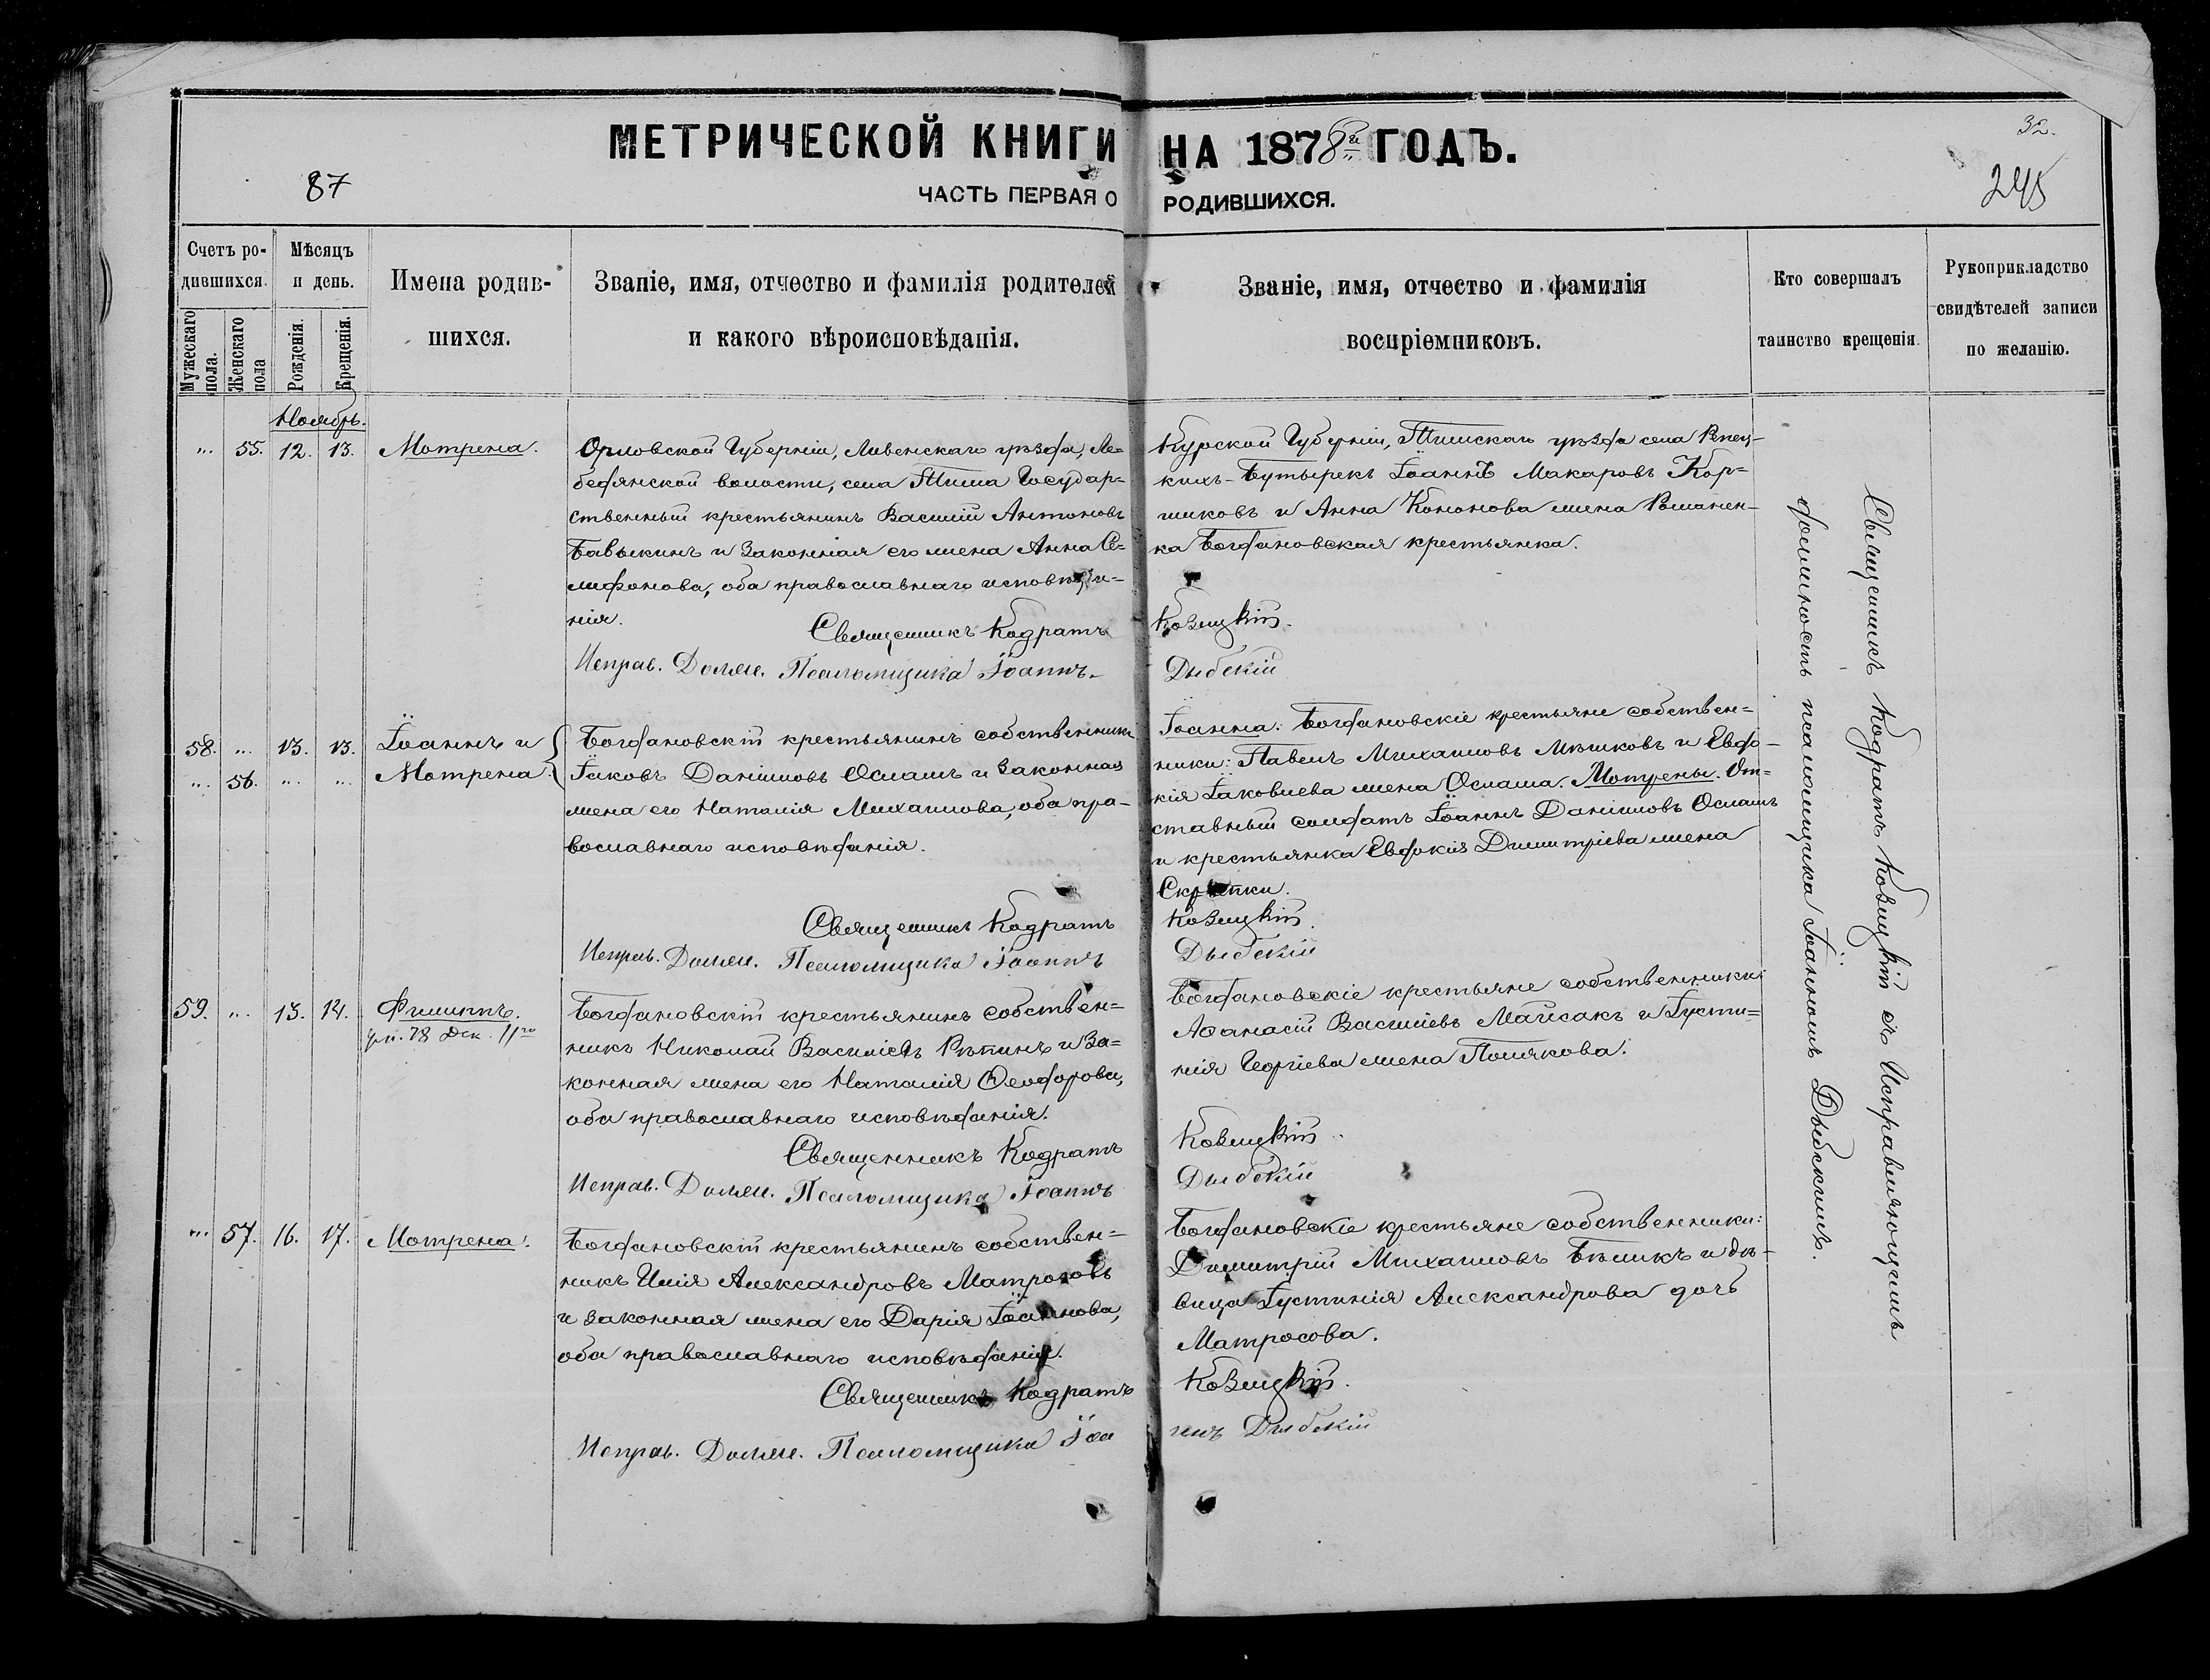 МЕТРИЧЕСКОЙ КНИГИ НА 1878й ГОДЪ.
32.
87
ЧАСТЬ ПЕРВАЯ О РОДИВШИХСЯ.
245
Счетъ ро-
дившихся.
Мужескаго пола.
Женскаго пола
Мѣсяцъ
и день.
Рожденія.
Крещенія.
Имена родив-
шихся.
Званіе, имя, отчество и фамилія родителей
и какого вѣроисповѣданія.
Званіе, имя, отчество и фамилія
воспріемниковъ.
Кто совершалъ
таинство крещенія.
Рукоприкладство
свидѣтелей записи
по желанію.
Ноябрь.
" 55. 12. 13. Мотрена.
Орловской Губерніи, Ливенскаго уѣзда, Ле=
бедянской волости, села Тима Государ=
ственный крестьянинъ Василій Антоновъ
Бавыкинъ и законная его жена Анна Се=
лифонова, оба православнаго исповѣда=
нія.
Священникъ Кодратъ
Исправ. Должн. Псаломщика Іоаннъ
Курской Губерніи, Тимскаго уѣзда села Репец-
кихъ-Бутырекъ Іоаннъ Макаровъ Кор=
шиковъ и Анна Кононова жена Романен-
ка Богдановская крестьянка.
Козицкій.
Дыбскій
58. " 13. 13. Іоаннъ и
" 56. " " Мотрена.
Богдановскій крестьянинъ собственникъ
Іаковъ Даніиловъ Ослашъ и законная
жена его Наталія Михаилова, оба пра-
вославнаго исповѣданія.
Священникъ Кодратъ
Исправ. Должн. Псаломщика Іоаннъ
Іоанна: Богдановскіе крестьяне собствен=
ники: Павелъ Михаиловъ Мѣшковъ и Евдо-
кія Іаковлева жена Ослаша. Мотрены. От=
ставный солдатъ Іоаннъ Даніиловъ Ослашъ
и крестьянка Евдокія Димитріева жена
Козицкій.
Дыбскій
59. " 13. 14. Филиппъ.
ум. 78 Дек. 11го
Богдановскій крестьянинъ собствен=
никъ Николай Василіевъ Рѣпинъ и за=
конная жена его Наталія Ѳеодорова,
оба православнаго исповѣданія.
Священникъ Кодратъ
Исправ. Должн. Псаломщика Іоаннъ
Богдановскіе крестьяне собственники:
Аѳанасій Василіевъ Майсакъ и Іусти=
нія Георгіева жена Полякова.
Козицкій
Дыбскій
" 57. 16. 17. Мотрена.
Богдановскій крестьянинъ собствен=
никъ Илія Александровъ Матросовъ
и законная жена его Дарія Іоаннова,
оба православнаго исповѣданія.
Священникъ Кодратъ
Исправ. Должн. Псаломщика Іоа
Богдановскіе крестьяне собственники:
Димитрій Михаиловъ Бѣликъ и дѣ-
вица Іустинія Александрова дочь
Матросова.
Козицкій.
ннъ Дыбскій
Священникъ Кодратъ Козицкій съ Исправляющимъ
должность псаломщика Іоанномъ Дыбскимъ.